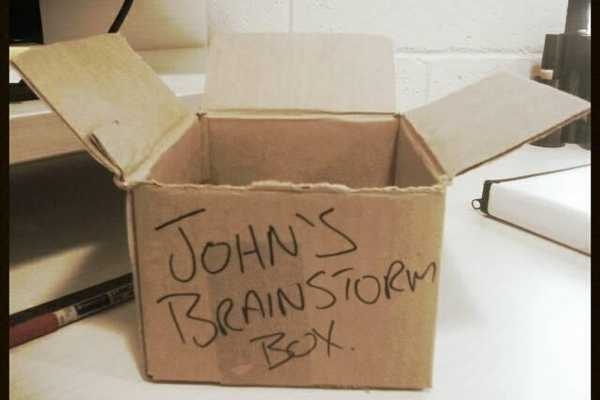 JOHN'S
BRAINSTORM
BOX.